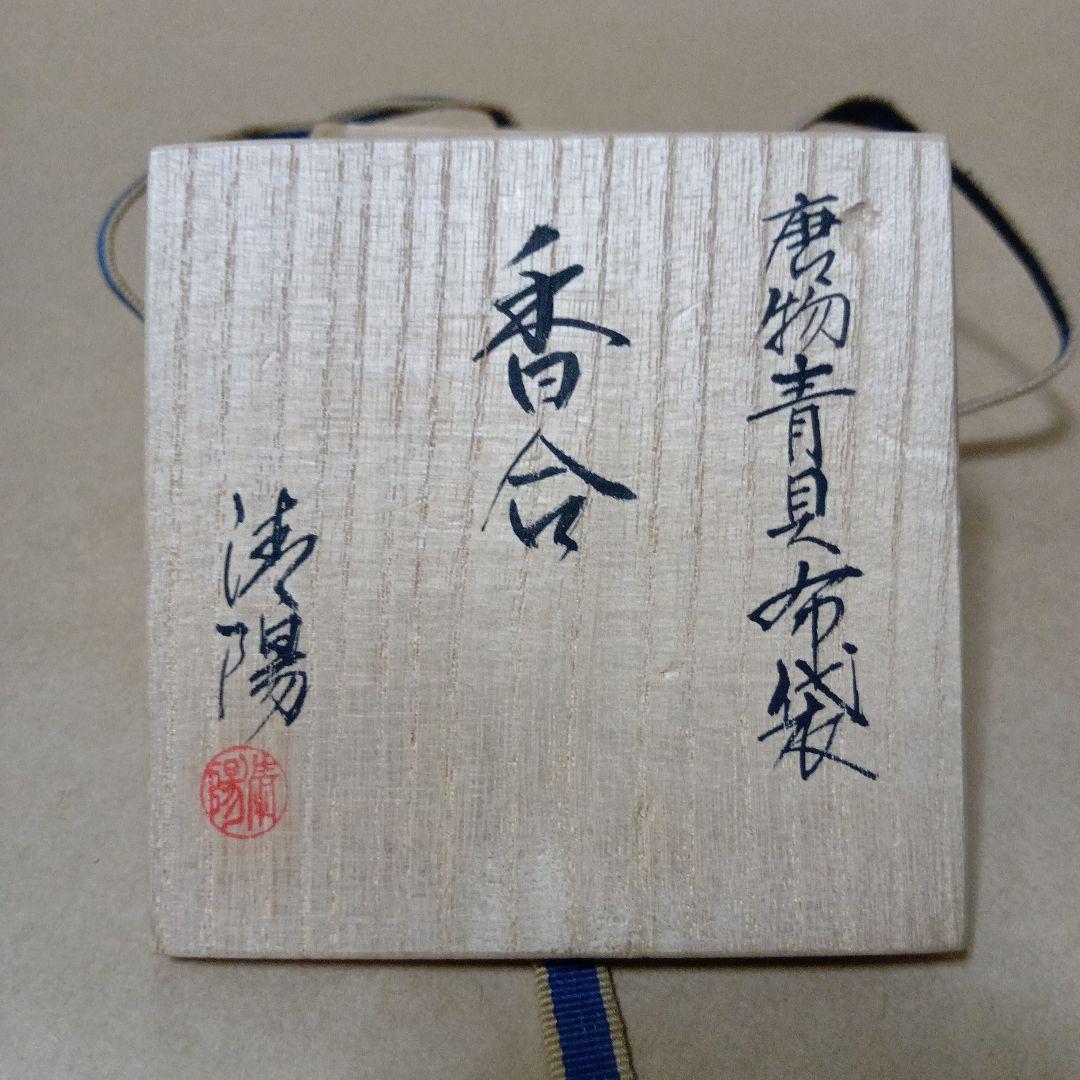 唐物青貝布袋
香合
清陽
清陽